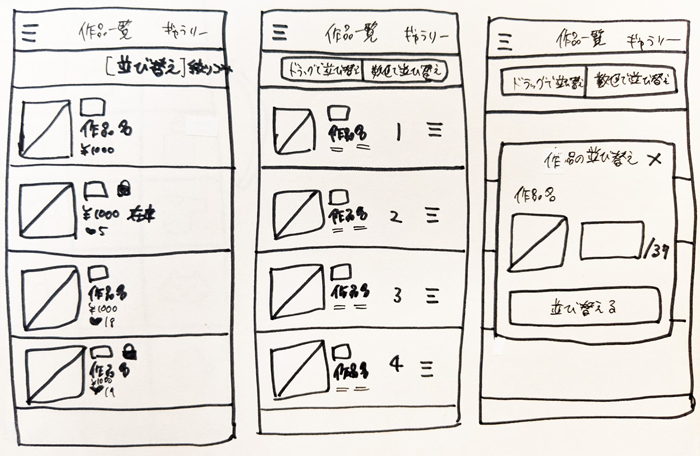 作品一覧 ギャラリー
[並び替え] 絞りこみ
作品名
¥1000
¥1000 在庫
♥5
作品名
¥1000
♥18
作品名
¥1000
♥19
作品一覧 ギャラリー
ドラッグで並び替え 数色で並び替え
作品名 1
作品名 2
作品名 3
作品名 4
作品一覧 ギャラリー
ドラッグで並び替え 数色で並び替え
作品の並び替え ×
作品名
/39
並び替える